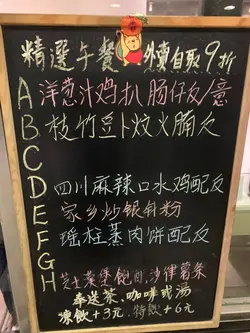 精選午餐 外賣自取9折
A 洋葱汁鸡扒肠仔反/意
B 枝竹豆卜炆火腩反
C
D 四川麻辣口水鸡配反
E 家乡炒银针粉
F 瑶柱蒸肉饼配反
G
H 芝士漢堡飽酎沙律薯条
奉送茶、咖啡或湯
凍飲+3元 特飲+6元